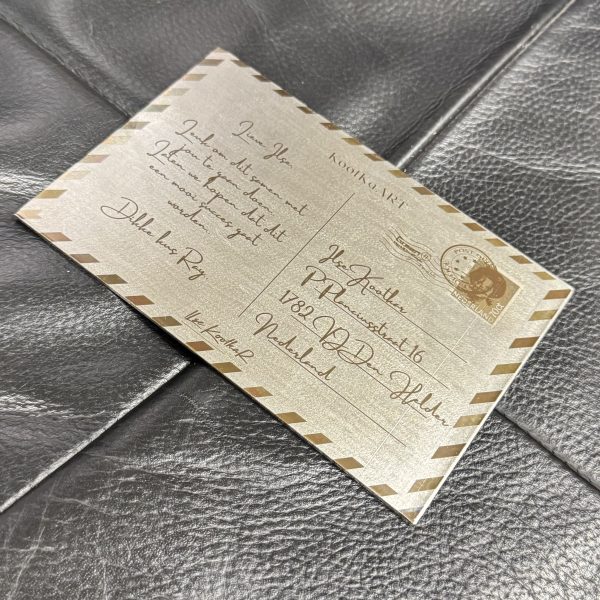 KOOKUART
Lieve Ilse,
Leuk om dit samen met
jou te gaan doen.
Laten we hopen dat dit
een mooi succes gaat
worden.
Dikke kus Ray.
Ilse Kootkar
Ilse Kootkar
P Planciusstraat 16
1782 VJ Den Helder
Nederland